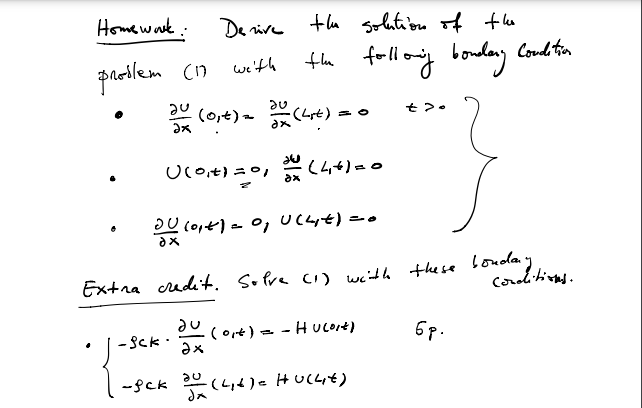 Homework: Derive the solution of the
problem (1) with the following bondary Condition
• ∂U/∂x (0,t) = ∂U/∂x (L,t) = 0 t > 0
• U(0,t) = 0, ∂U/∂x (L,t) = 0
• ∂U/∂x (0,t) = 0, U(L,t) = 0
Extra credit. Solve (1) with these bondary
conditions.
• { -ρck · ∂U/∂x (0,t) = - H U(0,t) 5p.
-ρck ∂U/∂x (L,t) = H U(L,t)